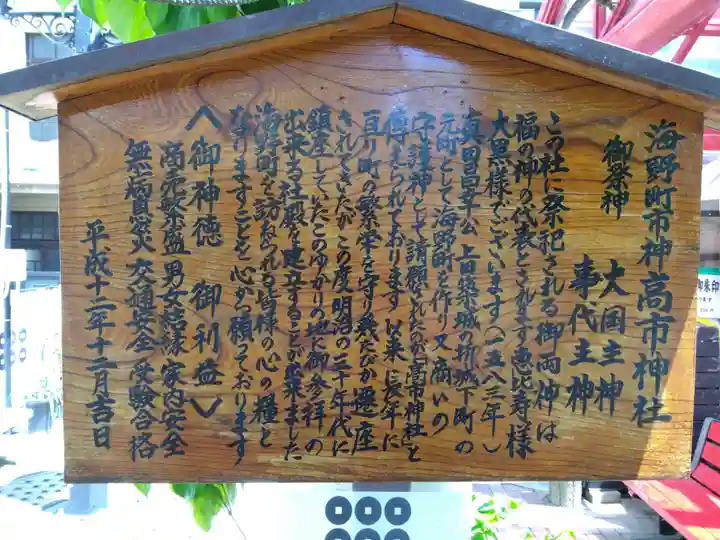 海野町市神高市神社
御祭神 大国主神
事代主神
この社に祭祀される御両神は
福の神の代表とされます恵比寿様
大黒様でございます(一五八三年)
真田昌幸公上田築城の折城下町の
元町として海野町を作り又商いの
守護神として請願されたのが「高市神社」と
傳えられております以来長年に
亘り町の繁栄を守り幾たびか遷座
されてきたがこの度明治の三十年代に
鎮座していたこのゆかりの地に御参拝の
出来る社殿を建立することが出来ました
海野町を訪ねられる皆様の心の糧と
なりますことを心から願っております
〈御神徳 御利益〉
商売繁盛 男女結縁 家内安全
無病息災 交通安全 受験合格
平成十二年十二月吉日
御朱印